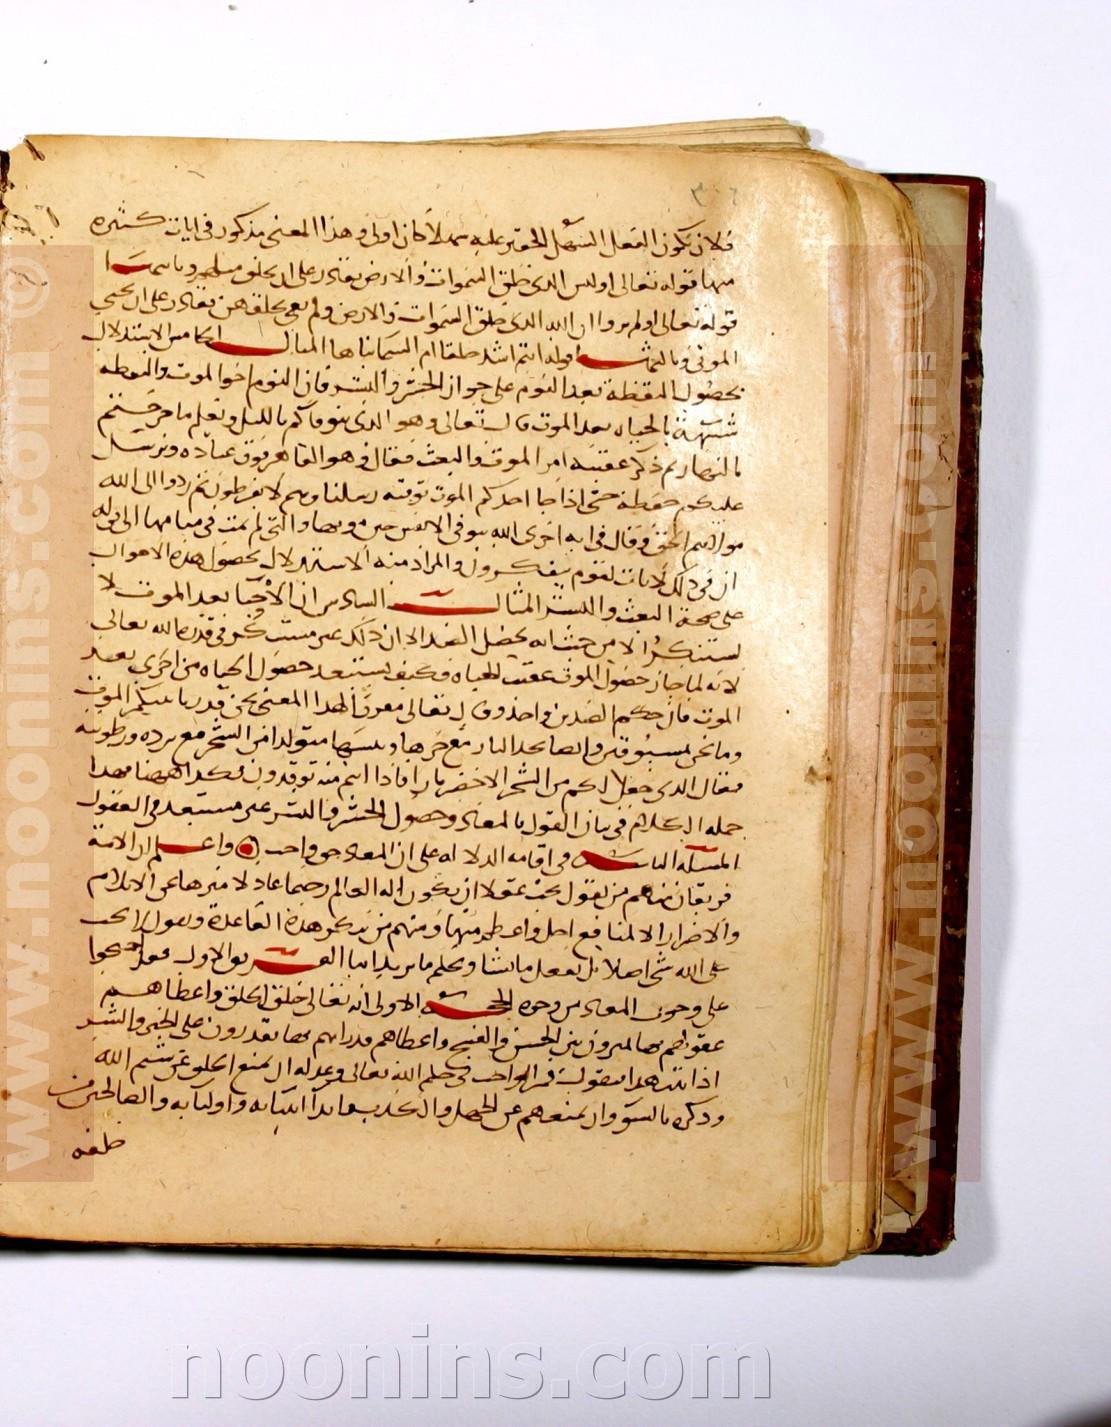 فلان يكون الفعل السهل الحقير عليه سهلا كان اولى وهذا المعنى مذكور في ايات كثيره
منها قوله تعالى اوليس الذي خلق السموات والارض بقادر على ان يخلق مثلهم وثانيها
قوله تعالى اولم يروا ان الله الذي خلق السموات والارض ولم يعي بخلقهن بقادر على ان يحيي
الموتى وثالثها قوله اانتم اشد خلقا ام السما بناها المثال الخامس الاستدلال
بحصول اليقظة بعد النوم على جواز الحشر والنشر فان النوم اخو الموت واليقظه
شبيهة بالحياه بعد الموت قال تعالى وهو الذي يتوفاكم بالليل ويعلم ما جرحتم
بالنهار ثم ذكر عقيبه امر الموت والبعث فقال وهو القاهر فوق عباده ويرسل
عليكم حفظة حتى اذا جا احدكم الموت توفته رسلنا وهم لا يفرطون ثم ردوا الى الله
مولاهم الحق وقال في ايه اخرى الله يتوفى الانفس حين موتها والتي لم تمت في منامها الى قوله
ان في ذلك لايات لقوم يتفكرون والمراد منه الاستدلال بحصول هذه الاحوال
على صحة البعث والنشر المثال السادس ان الاحيا بعد الموت لا
يستنكر الا من حيث انه يحصل الضد الا ان ذلك غير مستنكر في قدرة الله تعالى
لانه لما جاز حصول الموت عقيب الحياه فكيف يستبعد حصول الحياه مرة اخرى بعد
الموت فان حكم الضدين واحد وقال تعالى مقررا لهذا المعنى نحن قدرنا بينكم الموت
وما نحن بمسبوقين وايضا نجد النار مع حرها ويبسها متولدا من الشجر مع برده ورطوبته
فقال الذي جعل لكم من الشجر الاخضر نارا فاذا انتم منه توقدون فكذا ههنا فهذا
جملة الكلام في بيان القول بالمعاد وحصول الحشر والنشر غير مستبعد في العقول
المسئلة الثانيه في اقامة الدلاله على ان المعاد حق واجب واعلم ان الامة
فريقان منهم من يقول يجب عقلا ان يكون اله العالم رحيما عادلا منزها عن الايلام
والاضرار الا لمنافع اجل واعظم منها ومنهم من ينكر هذه القاعدة ويقول لا يجب
على الله شي اصلا بل يفعل ما يشا ويحكم ما يريد اما الفريق الاول فقد احتجوا
على وجود المعاد من وجوه الحجه الاولى انه تعالى خلق الخلق واعطاهم
عقولا بها يميزون بين الحسن والقبيح واعطاهم قدرا بها يقدرون على الخير والشر
اذا ثبت هذا فنقول فمن الواجب في حكم الله تعالى وعدله ان يمنع الخلق عن شتم الله
وذكره بالسوء وان يمنعهم عن الجهل والكذب وايذا انبيائه واوليائه والصالحين من
خلقه
www.noonins.com ©
www.noonins.com ©
noonins.com